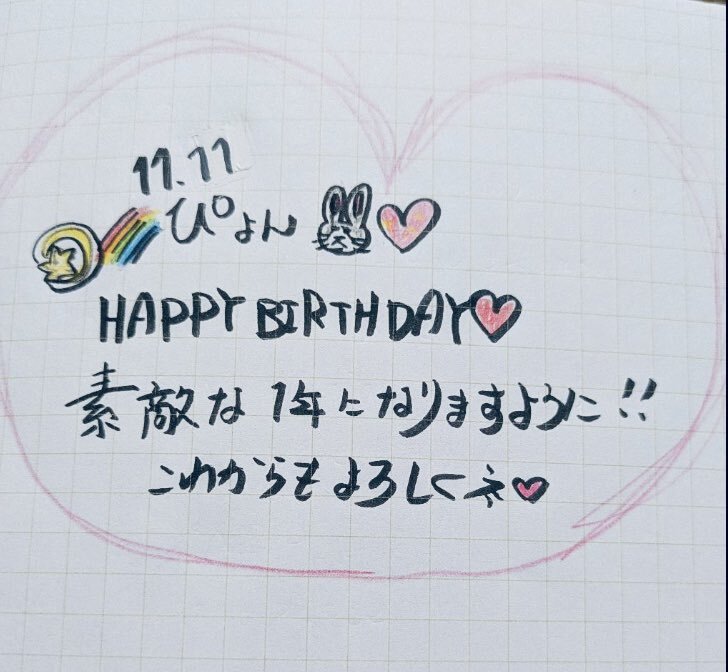 11.11
ぴょん
HAPPY BIRTHDAY
素敵な1年になりますように!!
これからもよろしくネ